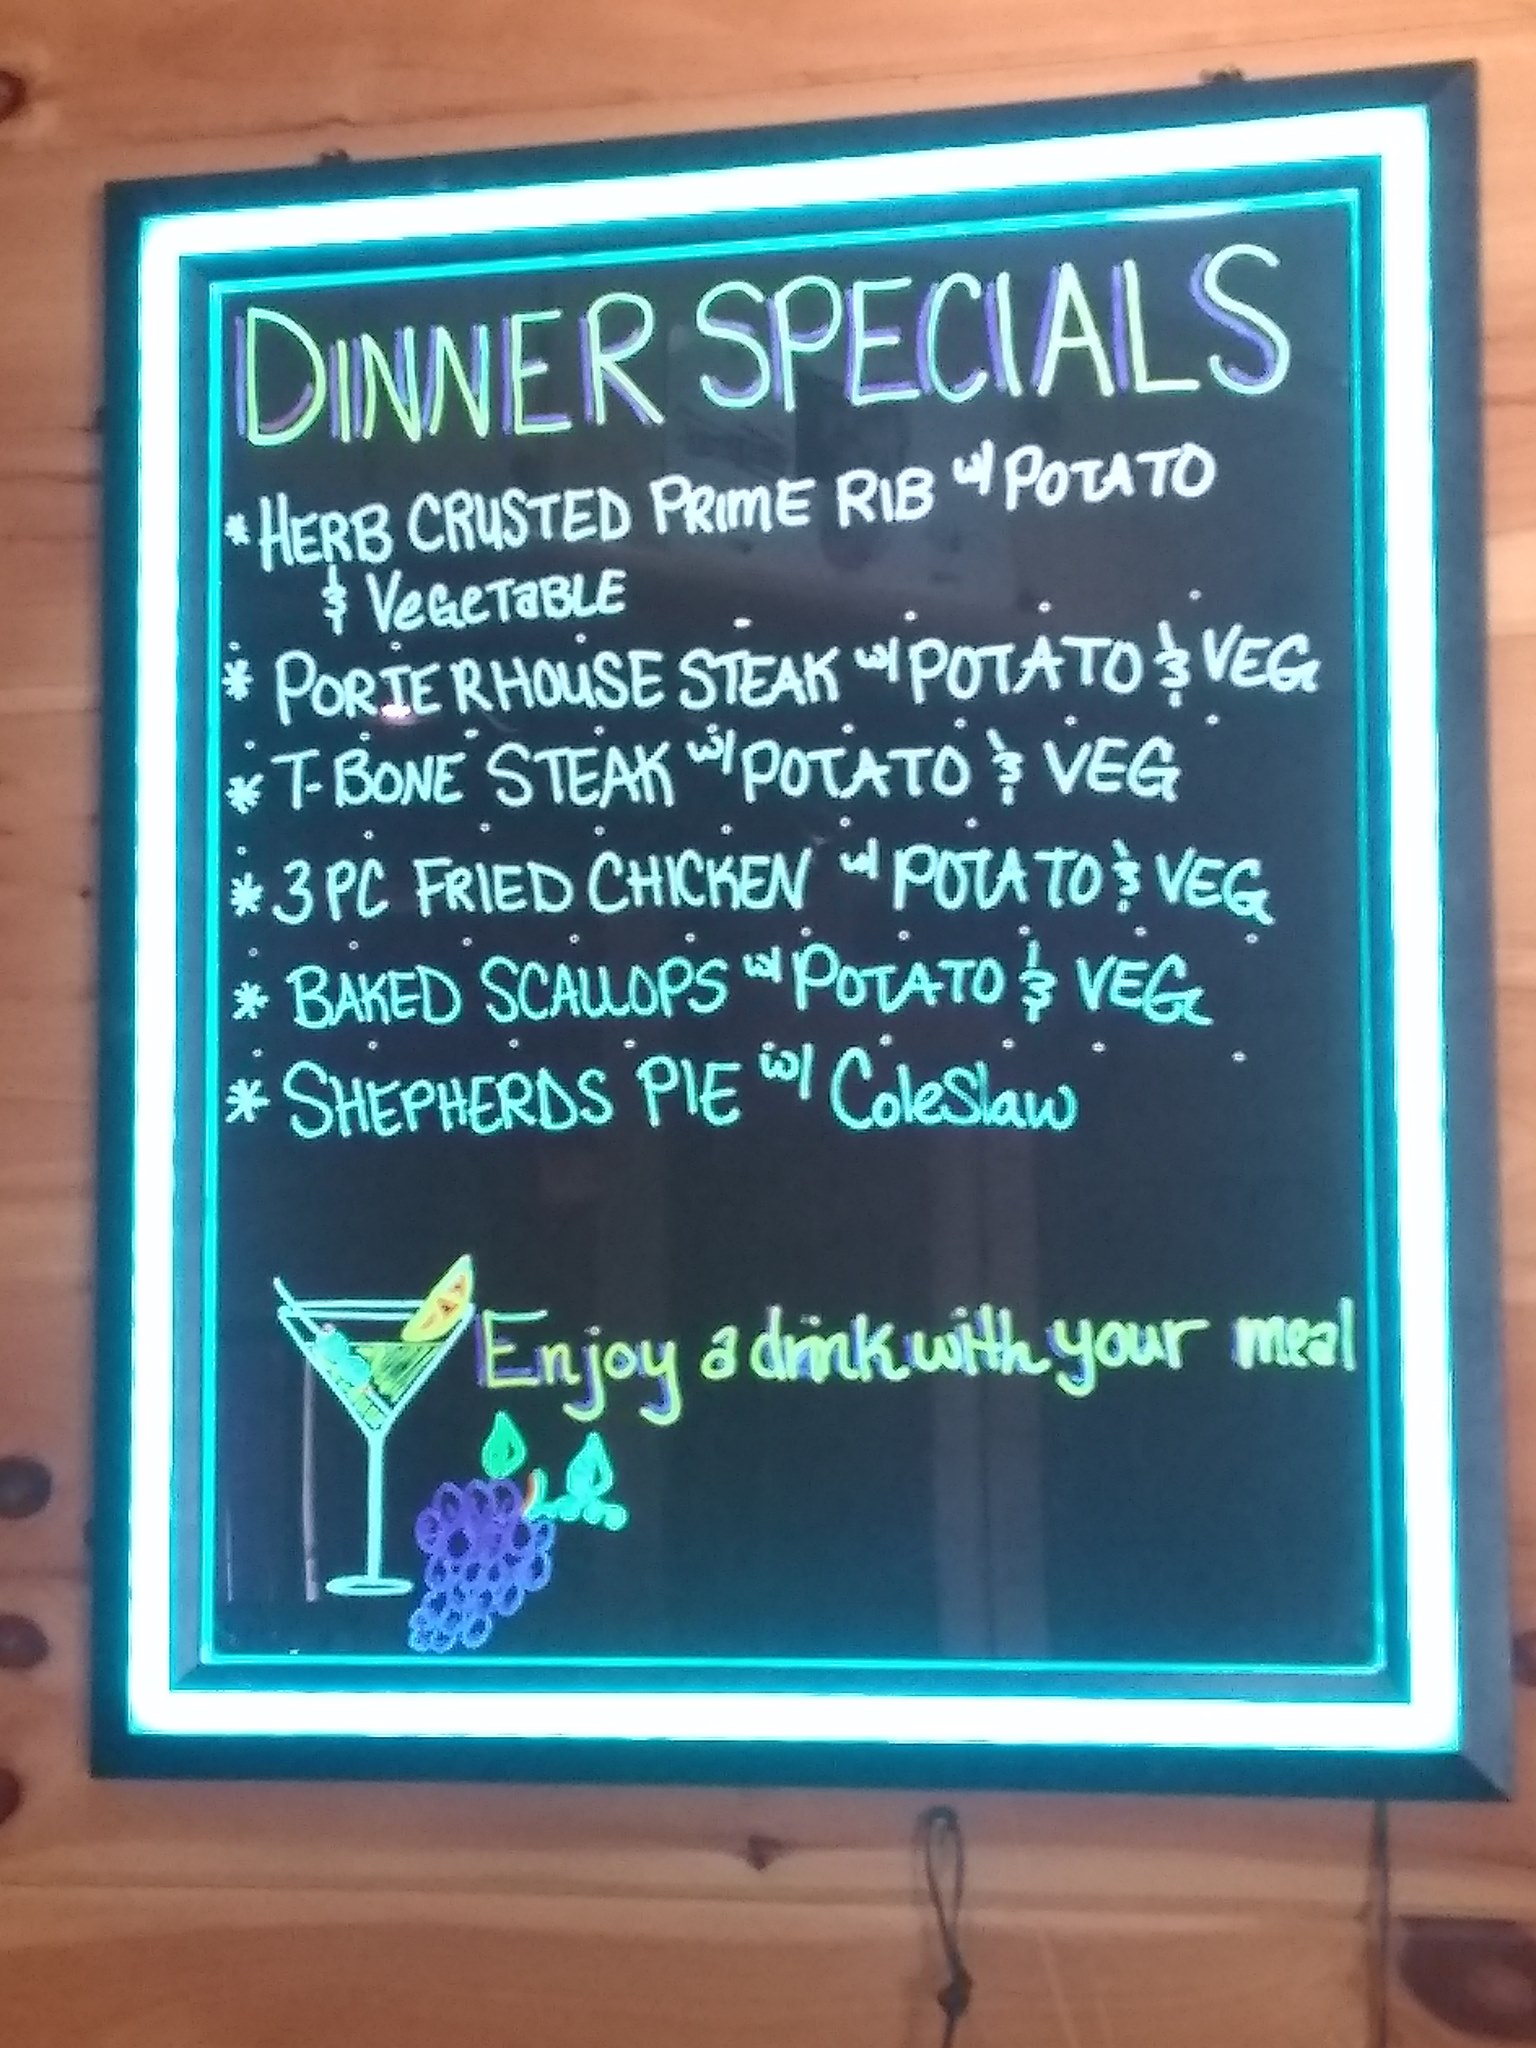 DINNER SPECIALS
* HERB CRUSTED PRIME RIB w/ POTATO
& VEGETABLE
* PORTERHOUSE STEAK w/ POTATO & VEG
* T-BONE STEAK w/ POTATO & VEG
* 3 PC FRIED CHICKEN w/ POTATO & VEG
* BAKED SCALLOPS w/ POTATO & VEG
* SHEPHERDS PIE w/ ColeSlaw
Enjoy a drink with your meal